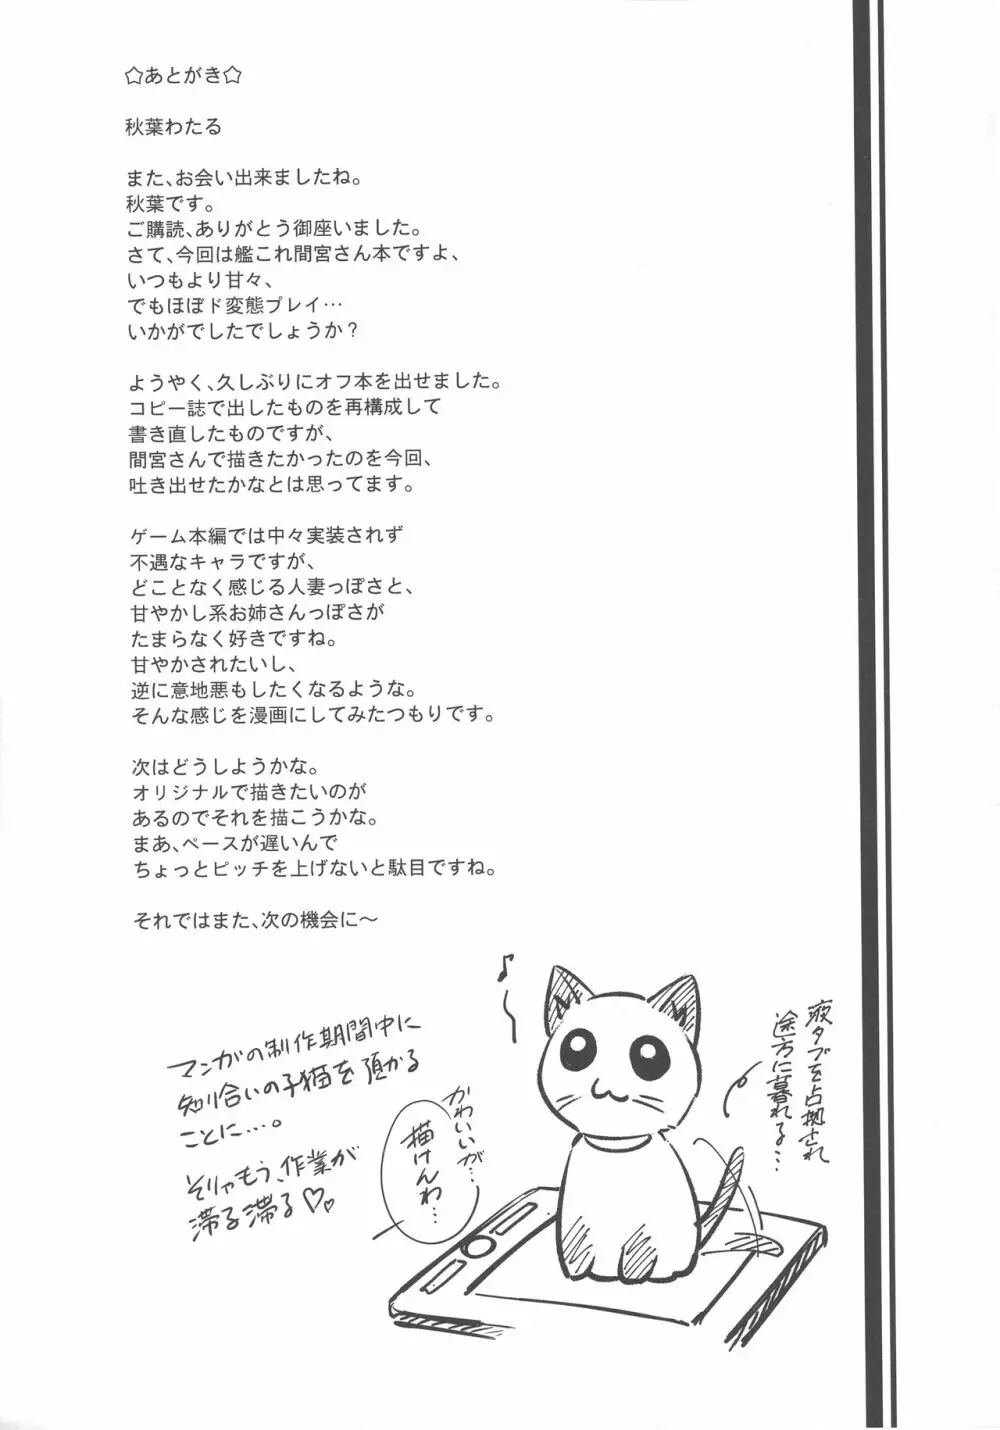 ☆あとがき☆
秋葉わたる
また、お会い出来ましたね。
秋葉です。
ご購読、ありがとう御座いました。
さて、今回は艦これ間宮さん本ですよ、
いつもより甘々、
でもほぼド変態プレイ…
いかがでしたでしょうか?
ようやく、久しぶりにオフ本を出せました。
コピー誌で出したものを再構成して
書き直したものですが、
間宮さんで描きたかったのを今回、
吐き出せたかなとは思ってます。
ゲーム本編では中々実装されず
不遇なキャラですが、
どことなく感じる人妻っぽさと、
甘やかし系お姉さんっぽさが
たまらなく好きですね。
甘やかされたいし、
逆に意地悪もしたくなるような。
そんな感じを漫画にしてみたつもりです。
次はどうしようかな。
オリジナルで描きたいのが
あるのでそれを描こうかな。
まあ、ペースが遅いんで
ちょっとピッチを上げないと駄目ですね。
それではまた、次の機会に～
マンガの制作期間中に
知り合いの子猫を預かる
ことに…。
そりゃもう、作業が
滞る滞る♡♡
かわいいが…
描けんわ…
♪
液タブを占拠され
途方に暮れる…